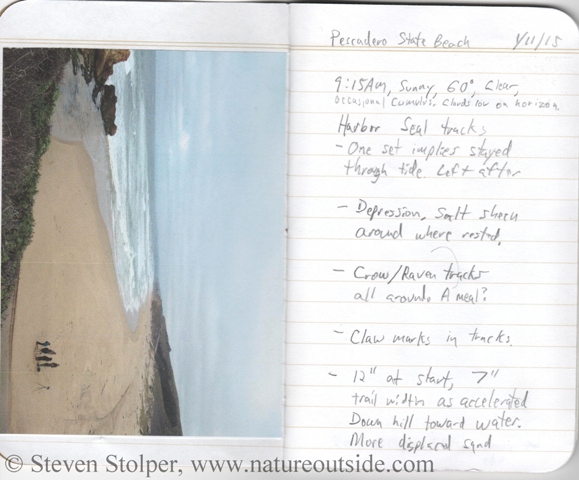 Pescadero State Beach 1/11/15
9:15Am, Sunny, 60°, Clear,
occasional cumulus. Clouds low on horizon.
Harbor Seal tracks
- One set implies stayed
through tide. Left after
- Depression, Salt sheen
around where rested.
- Crow/Raven tracks
all around. A meal?
- Claw marks in tracks.
- 12" at start, 7"
trail width as accelerated
Down hill toward water.
More displaced sand
© Steven Stolper, www.natureoutside.com